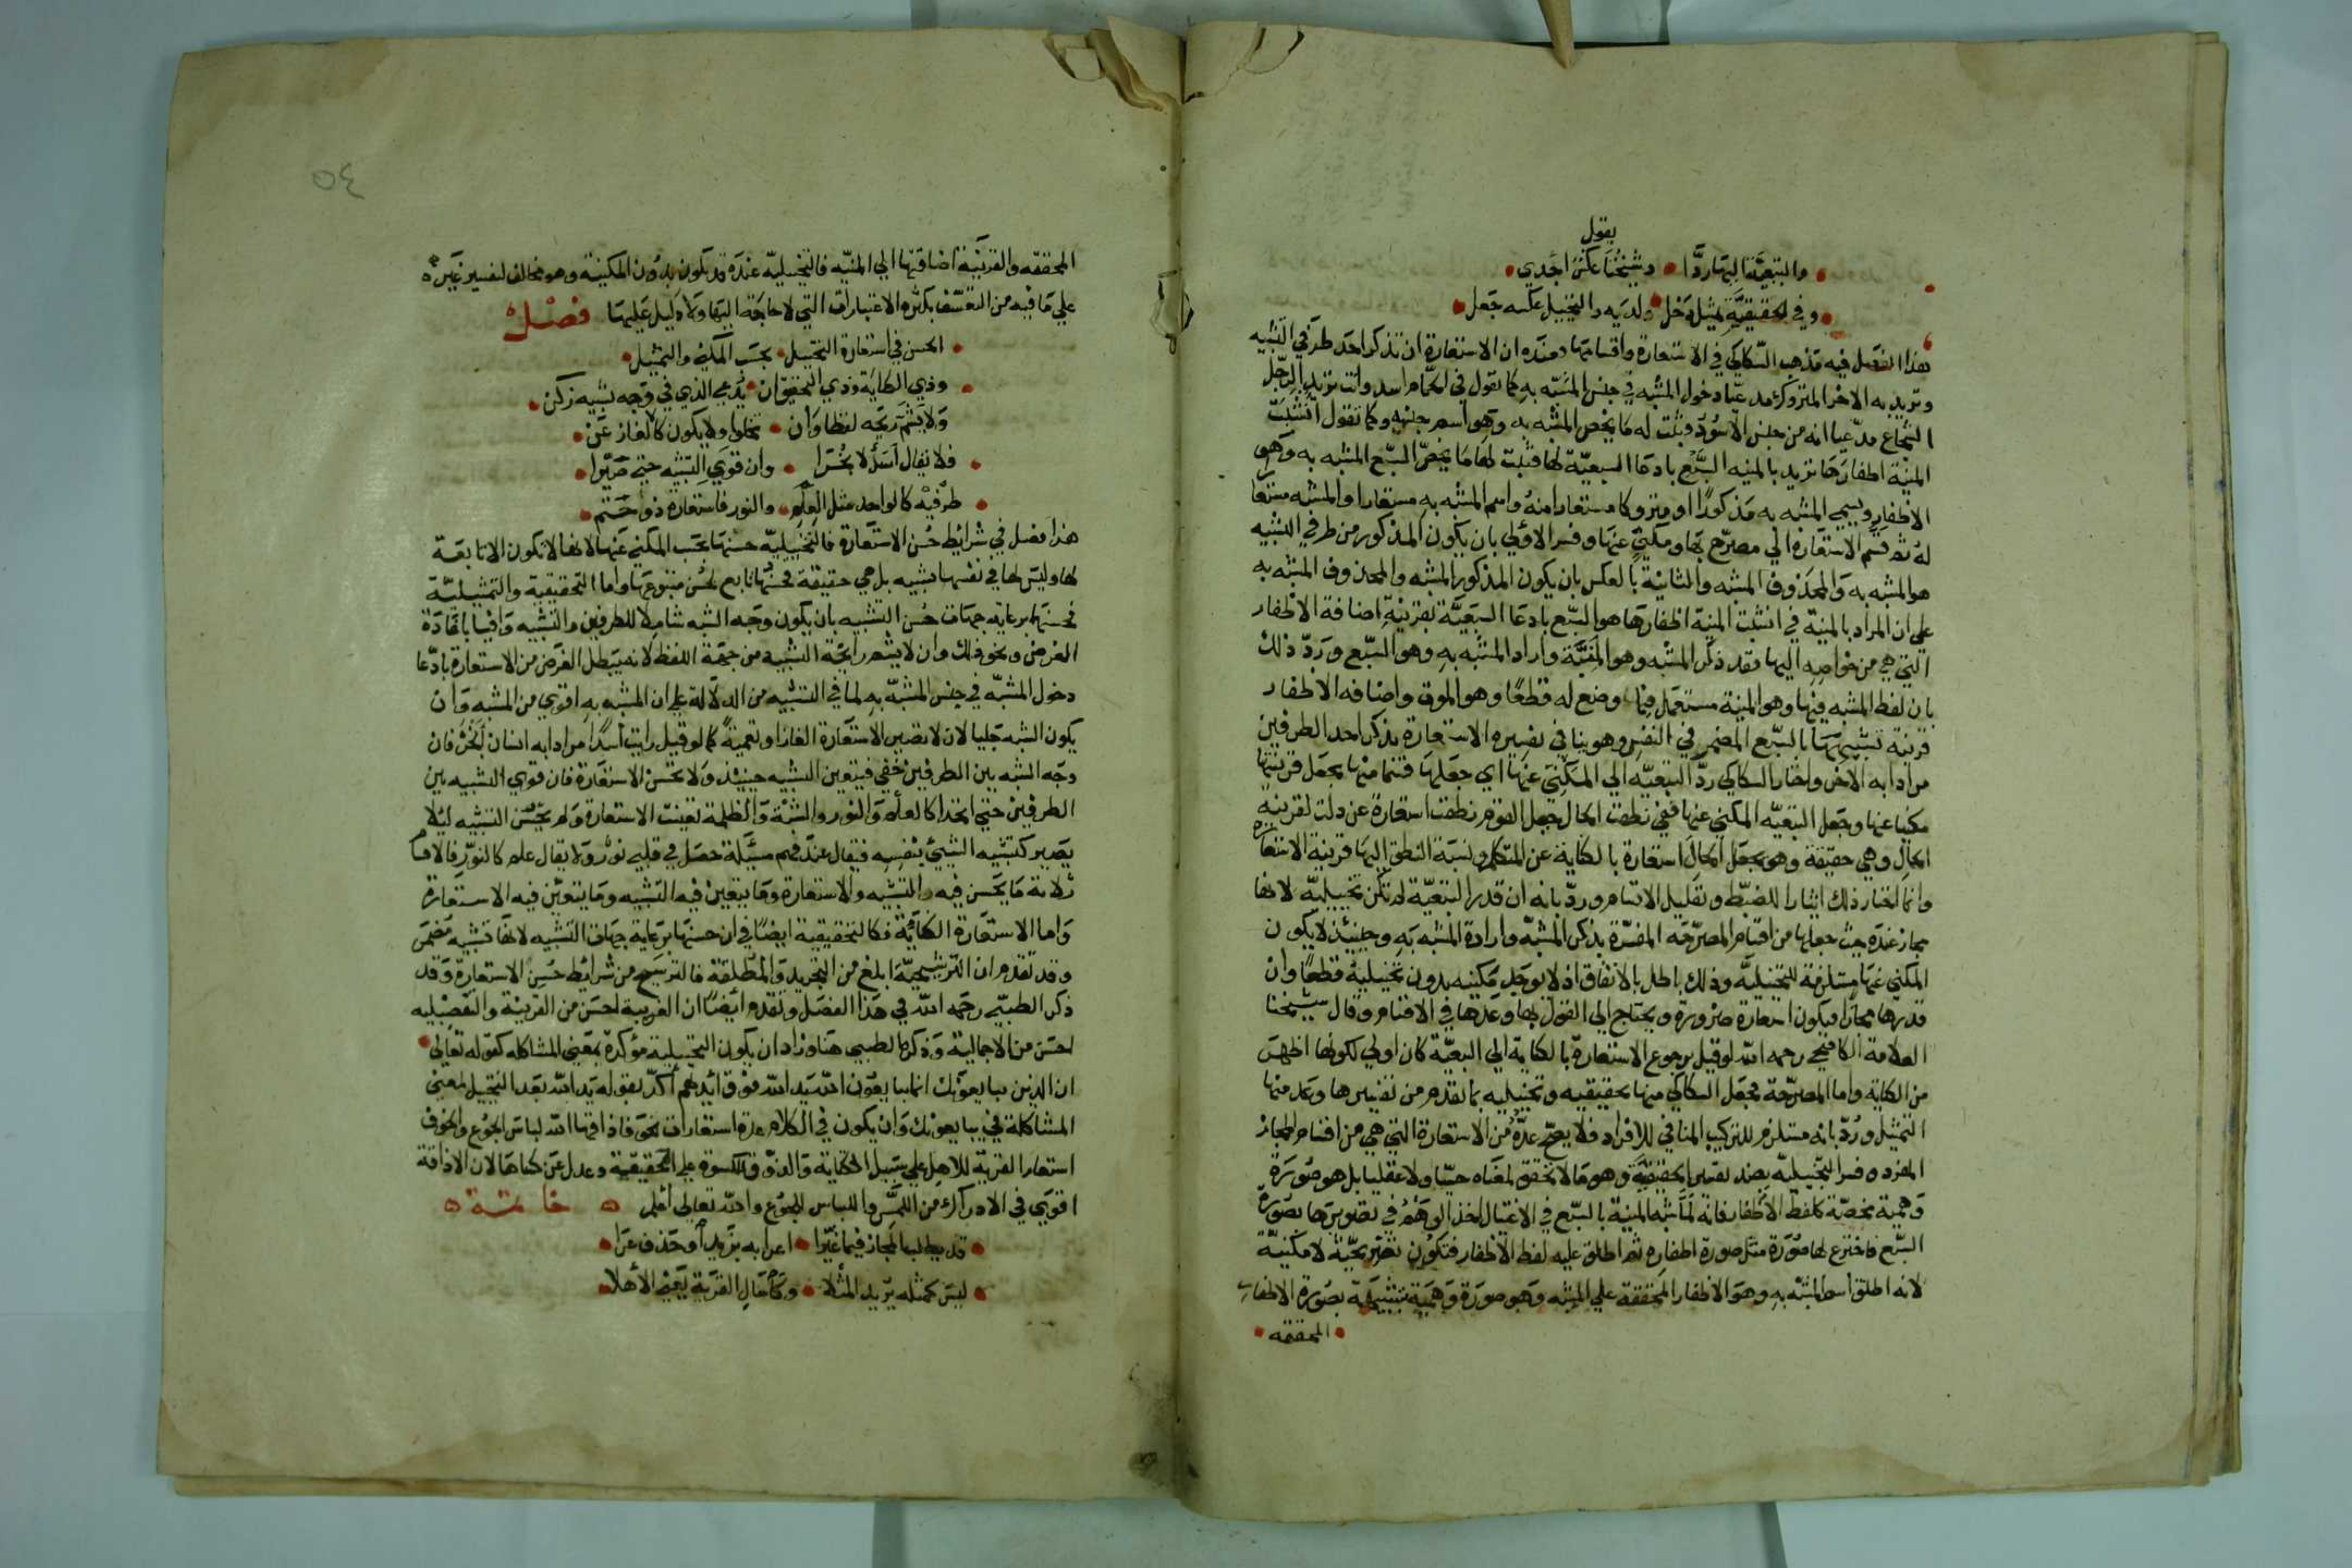 يقول
والتبعية اليها ردا • وشيخنا عكس اجدي
وفي الحقيقية تمثيل دخل • لديه والتخييل عكسه جعل
هذا الفصل فيه مذهب السكاكي في الاستعارة واقسامها وعنده ان الاستعارة ان تذكر احد طرفي التشبيه
وتريد به الاخر المتروك مدعيا دخول المشبه في جنس المشبه به كما تقول في الحمام اسد وانت تريد الرجل
الشجاع مدعيا انه من جنس الاسود فتثبت له ما يخص المشبه به وهو اسم جنسه وكما تقول انشبت
المنية اظفارها تريد بالمنيه السبع بادعا السبعية لها فتثبت لها ما يخص السبع المشبه به وهو
الاظفار ويسمي المشبه به مذكورا او متروكا مستعارا منه واسم المشبه به مستعارا والمشبه مستعا
له ثم قسم الاستعارة الي مصرح بها ومكني عنها وفسر الاولي بان يكون المذكور من طرفي التشبيه
هو المشبه به والمحذوف المشبه والثانية بالعكس بان يكون المذكور المشبه والمحذوف المشبه به
علي ان المراد بالمنية في انشبت المنية اظفارها هو السبع بادعا السبعية بقرينة اضافة الاظفار
التي هي من خواصه اليها فقد ذكر المشبه وهو المنية واراد المشبه به وهو السبع ورد ذلك
بان لفظ المشبه فيها وهو المنية مستعمل فيما وضع له قطعا وهو الموت واضافه الاظفار
قرينة تشبيهها بالسبع المضمر في النفس وهو ينافي تفسيره الاستعارة بذكر احد الطرفين
مرادا به الاخر واختار السكاكي رد التبعيه الي المكني عنها اي جعلها قسما منها بجعل قرينتها
مكنيا عنها وجعل التبعيه المكني عنها ففي نطقت الحال جعل القوم نطقت استعارة عن دلت لقرينة
الحال وهي حقيقة وهو يجعل الحال استعارة بالكناية عن المتكلم ونسبة النطق اليها قرينة الاستعارة
وانما اختار ذلك ايثارا للضبط وتقليل الاقسام ورد بانه ان قدر التبعية لم تكن تخييلية لانها
مجاز عنده حيث جعلها من اقسام المصرحه المفسرة بذكر المشبه وارادة المشبه به وحينئذ لا يكون
المكني عنها مستلزمة للتخييلية وذلك باطل بالاتفاق اذ لا توجد مكنيه بدون تخييلية قطعا وان
قدرها مجازا فيكون استعارة ضرورة ويحتاج الي القول بها وعدها في الاقسام وقال شيخنا
العلامة الكافيجي رحمه الله لو قيل برجوع الاستعارة بالكناية الي التبعية كان اولي لكونها اظهر
من الكناية واما المصرحة فجعل السكاكي منها تحقيقيه وتخييليه بما تقدم من تفسيرها وعد منها
التمثيل ورد بانه مستلزم للتركيب المنافي للافراد فلا يصح عده من الاستعارة التي هي من اقسام المجاز
المفرد وفسر التخييلية بضد تفسير الحقيقية وهو ما لا تحقق لمعناه حسيا ولا عقليا بل هو صورة
وهمية محضة كلفظ الاظفار فانه لما شبه المنية بالسبع في الاغتيال اخذ الوهم في تصويرها بصورة
السبع فاخترع لها صورة مثل صورة اظفاره ثم اطلق عليه لفظ الاظفار فتكون تصريحية لا مكنية
لانه اطلق اسم المشبه به وهو الاظفار المحققة علي المشبه وهو صورة وهمية شبيهة بصورة الاظفار
المحققه
٥٤
المحققه والقرينة اضافتها الي المنيه فالتخييليه عنده قد تكون بدون المكنية وهو مخالف لتفسير غيره
علي ما فيه من التعسف بكثرة الاعتبارات التي لا حاجة اليها ولا دليل عليها فصل
الحسن في استعارة التخييل • بحسب المكني والتمثيل
وذي الكناية وذي التحقيق ان • يرعي الذي في وجه تشبيه زكن
ولا يشم ريحه لفظا وان • تجلوا ولا يكون كالالغاز عن
فلا تقال اسد لابخرا • وان قوي التشبيه حتي صيرا
طرفيه كالواحد مثل العلم • والنور فاستعارة ذو حتم
هذا فصل في شرائط حسن الاستعارة فالتخييلية حسنها بحسب المكني عنها لانها لا تكون الا تابعة
لها وليس لها في نفسها تشبيه بل هي حقيقة فحسنها تابع لحسن متبوعها واما التحقيقية والتمثيلية
فحسنها برعاية جهات حسن التشبيه بان يكون وجه الشبه شاملا للطرفين والتشبيه وافيا بافادة
الغرض ونحو ذلك وان لا يشم رايحة التشبيه من جهة اللفظ لانه يبطل الغرض من الاستعارة بادعا
دخول المشبه في جنس المشبه به لما في التشبيه من الدلالة علي ان المشبه به اقوي من المشبه وان
يكون الشبه جليا لان لا تصير الاستعارة الغازا وتعمية كما لو قيل رايت اسدا مرادا به انسان ابخر فان
وجه الشبه بين الطرفين خفي فيتعين التشبيه حينئذ ولا تحسن الاستعارة فان قوي التشبيه بين
الطرفين حتي اتحدا كالعلم والنور والشبهة والظلمة تعينت الاستعارة ولم يحسن التشبيه ليلا
يصير كتشبيه الشيئ بنفسه فيقال عند فهم مسئلة حصل في قلبي نور ولا يقال علم كالنور فالاقسا
ثلاثة ما يحسن فيه التشبيه والاستعارة وما يتعين فيه التشبيه وما يتعين فيه الاستعارة
واما الاستعارة الكنائية فكالتحقيقية ايضا في ان حسنها برعاية جهات التشبيه لانها تشبيه مضمر
وقد تقدم ان الترشيحية ابلغ من التجريد والمطلقة فالترشيح من شرائط حسن الاستعارة وقد
ذكر الطيبي رحمه الله في هذا الفصل وتقدم ايضا ان الغريبة احسن من القريبة والتفصيليه
احسن من الاجمالية وذكر الطيبي هنا وزاد ان يكون التخييلية مؤكدة بمعني المشاكله كقوله تعالي
ان الذين يبايعونك انما يبايعون الله يد الله فوق ايديهم أكد بقوله يد الله بعد التخييل لمعني
المشاكلة في يبايعونك وان يكون في الكلام عدة استعارات نحو فاذاقها الله لباس الجوع والخوف
استعار القرية للاهل علي سبيل الكناية والذوق للكسوة علي التحقيقية وعدل عن كساها لان الاذاقة
اقوي في الادراك من اللمس واللباس للجوع والله تعالي أعلم ه خاتمة ه
قد يطلب المجاز فيما غيرا • اعرابه بزيد أو حذف عرا
ليس كمثله يريد المثلا • وكاسال القرية يعني الأهلا